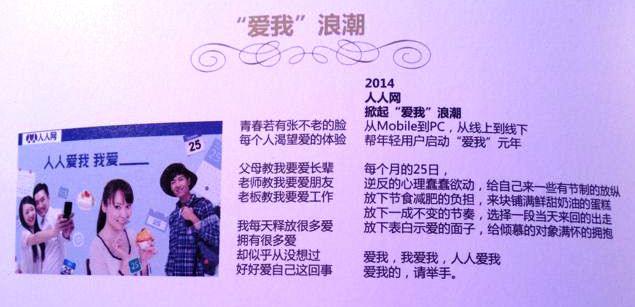 “爱我”浪潮
人人网
人人爱我 我爱
25
青春若有张不老的脸
每个人渴望爱的体验
父母教我要爱长辈
老师教我要爱朋友
老板教我要爱工作
我每天释放很多爱
拥有很多爱
却似乎从没想过
好好爱自己这回事
2014
人人网
掀起“爱我”浪潮
从Mobile到PC，从线上到线下
帮年轻用户启动“爱我”元年
每个月的25日，
逆反的心理蠢蠢欲动，给自己来一些有节制的放纵
放下节食减肥的负担，来块铺满鲜甜奶油的蛋糕
放下一成不变的节奏，选择一段当天来回的出走
放下表白示爱的面子，给倾慕的对象满怀的拥抱
爱我，我爱我，人人爱我
爱我的，请举手。